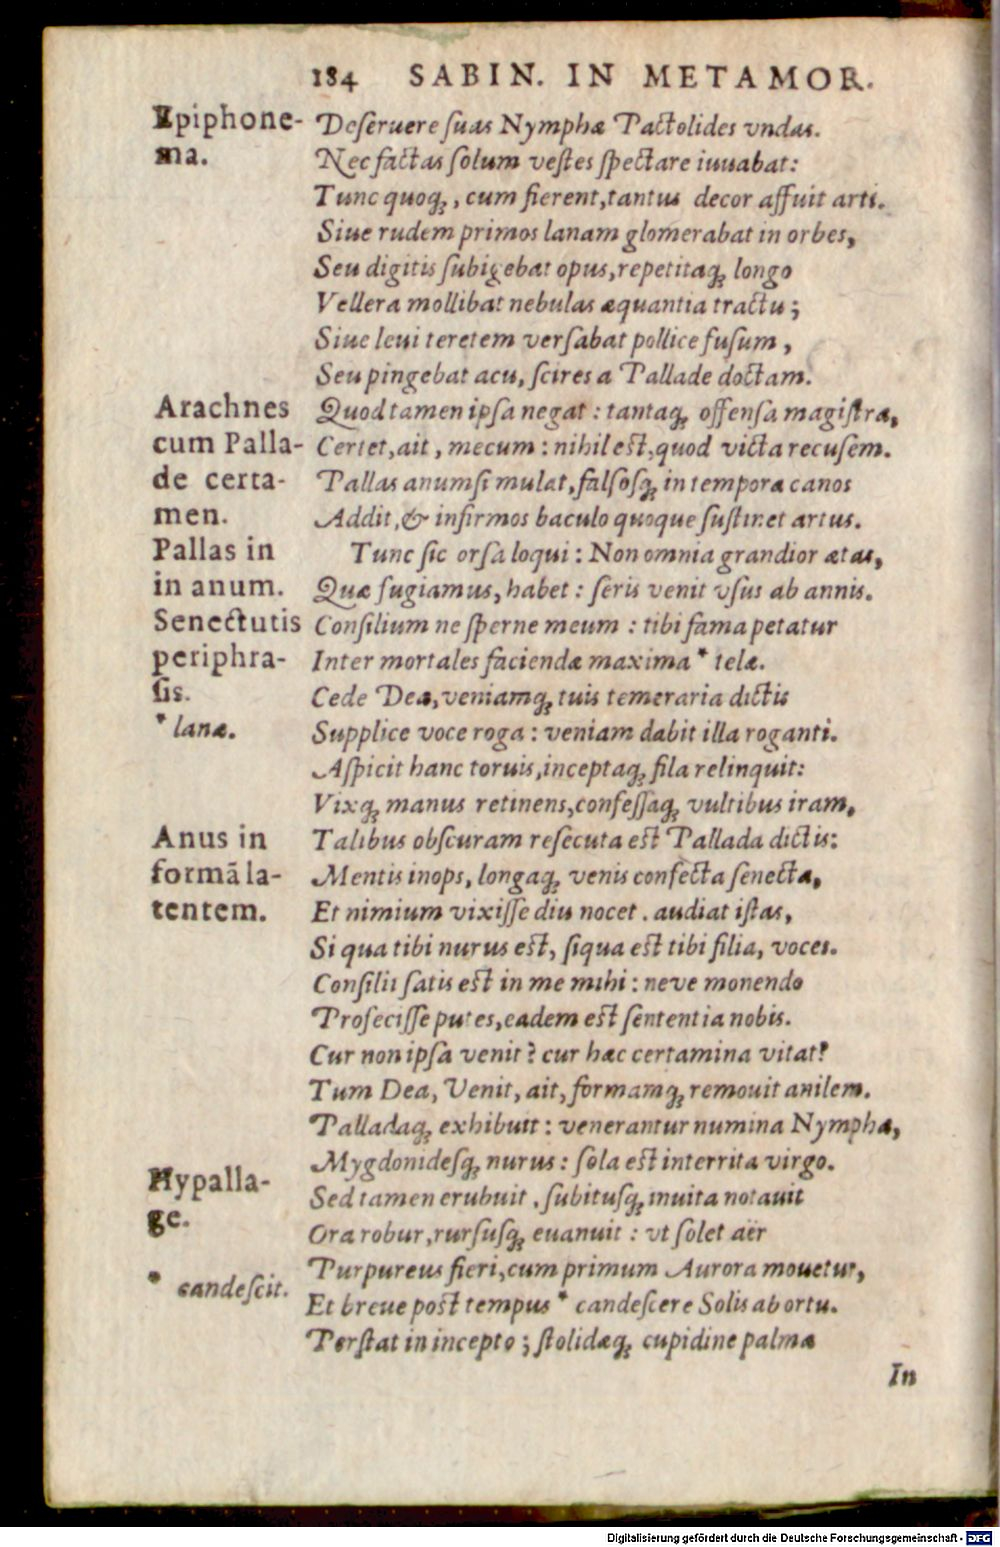 184 SABIN. IN METAMOR.
Epiphone-
ma.
Deseruere suas Nymphæ Pactolides vndas.
Nec factas solum vestes spectare iuuabat:
Tunc quoq;, cum fierent, tantus decor affuit arti.
Siue rudem primos lanam glomerabat in orbes,
Seu digitis subigebat opus, repetitaq; longo
Vellera mollibat nebulas æquantia tractu;
Siue leui teretem versabat pollice fusum,
Seu pingebat acu, scires a Pallade doctam.
Arachnes
cum Palla-
de certa-
men.
Pallas in
in anum.
Senectutis
periphra-
sis.
* lanæ.
Quod tamen ipsa negat: tantaq; offensa magistra,
Certet, ait, mecum: nihil est, quod victa recusem.
Pallas anum simulat, falsosq; in tempora canos
Addit, & infirmos baculo quoque sustinet artus.
Tunc sic orsa loqui: Non omnia grandior ætas,
Quæ fugiamus, habet: seris venit vsus ab annis.
Consilium ne sperne meum: tibi fama petatur
Inter mortales faciendæ maxima * telæ.
Cede Deæ, veniamq; tuis temeraria dictis
Supplice voce roga: veniam dabit illa roganti.
Aspicit hanc toruis, inceptaq; fila relinquit:
Vixq; manus retinens, confessaq; vultibus iram,
Anus in
formā la-
tentem.
Talibus obscuram resecuta est Pallada dictis:
Mentis inops, longaq; venis confecta senecta,
Et nimium vixisse diu nocet. audiat istas,
Si qua tibi nurus est, siqua est tibi filia, voces.
Consilii satis est in me mihi: neve monendo
Profecisse putes, eadem est sententia nobis.
Cur non ipsa venit? cur hæc certamina vitat?
Tum Dea, Venit, ait, formamq; remouit anilem.
Palladaq; exhibuit: venerantur numina Nymphæ,
Mygdonidesq; nurus: sola est interrita virgo.
Hypalla-
ge.
* candescit.
Sed tamen erubuit. subitusq; inuita notauit
Ora robur, rursusq; euanuit: vt solet aër
Purpureus fieri, cum primum Aurora mouetur,
Et breue post tempus * candescere Solis ab ortu.
Perstat in incepto; stolidæq; cupidine palmæ
In
Digitalisierung gefördert durch die Deutsche Forschungsgemeinschaft - DFG